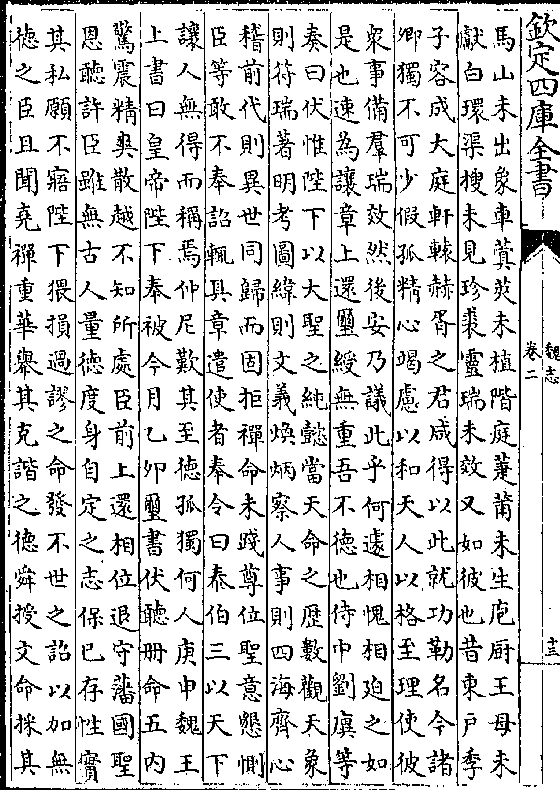 欽定四庫全書
魏志
卷二
十三
馬山未出象車蓂莢未植階庭萐莆未生庖厨王母未
獻白環渠搜未見珍裘靈瑞未效又如彼也昔東户季
子容成大庭軒轅赫胥之君咸得以此就功勒名今諸
卿獨不可少假孤精心竭慮以和天人以格至理使彼
衆事備羣瑞效然後安乃議此乎何遽相愧相迫之如
是也速為讓章上還璽綬無重吾不德也侍中劉廙等
奏曰伏惟陛下以大聖之純懿當天命之歴數觀天象
則符瑞著明考圖緯則文義煥炳察人事則四海齊心
稽前代則異世同歸而固拒禪命未踐尊位聖意懇惻
臣等敢不奉詔輒具章遣使者奉令曰泰伯三以天下
讓人無得而稱焉仲尼歎其至德孤獨何人庚申魏王
上書曰皇帝陛下奉被今月乙卯璽書伏聽冊命五内
驚震精爽散越不知所處臣前上還相位退守藩國聖
恩聽許臣雖無古人量德度身自定之志保已存性實
其私願不寤陛下猥損過謬之命發不世之詔以加無
徳之臣且聞堯禪重華舉其克諧之德舜授文命採其